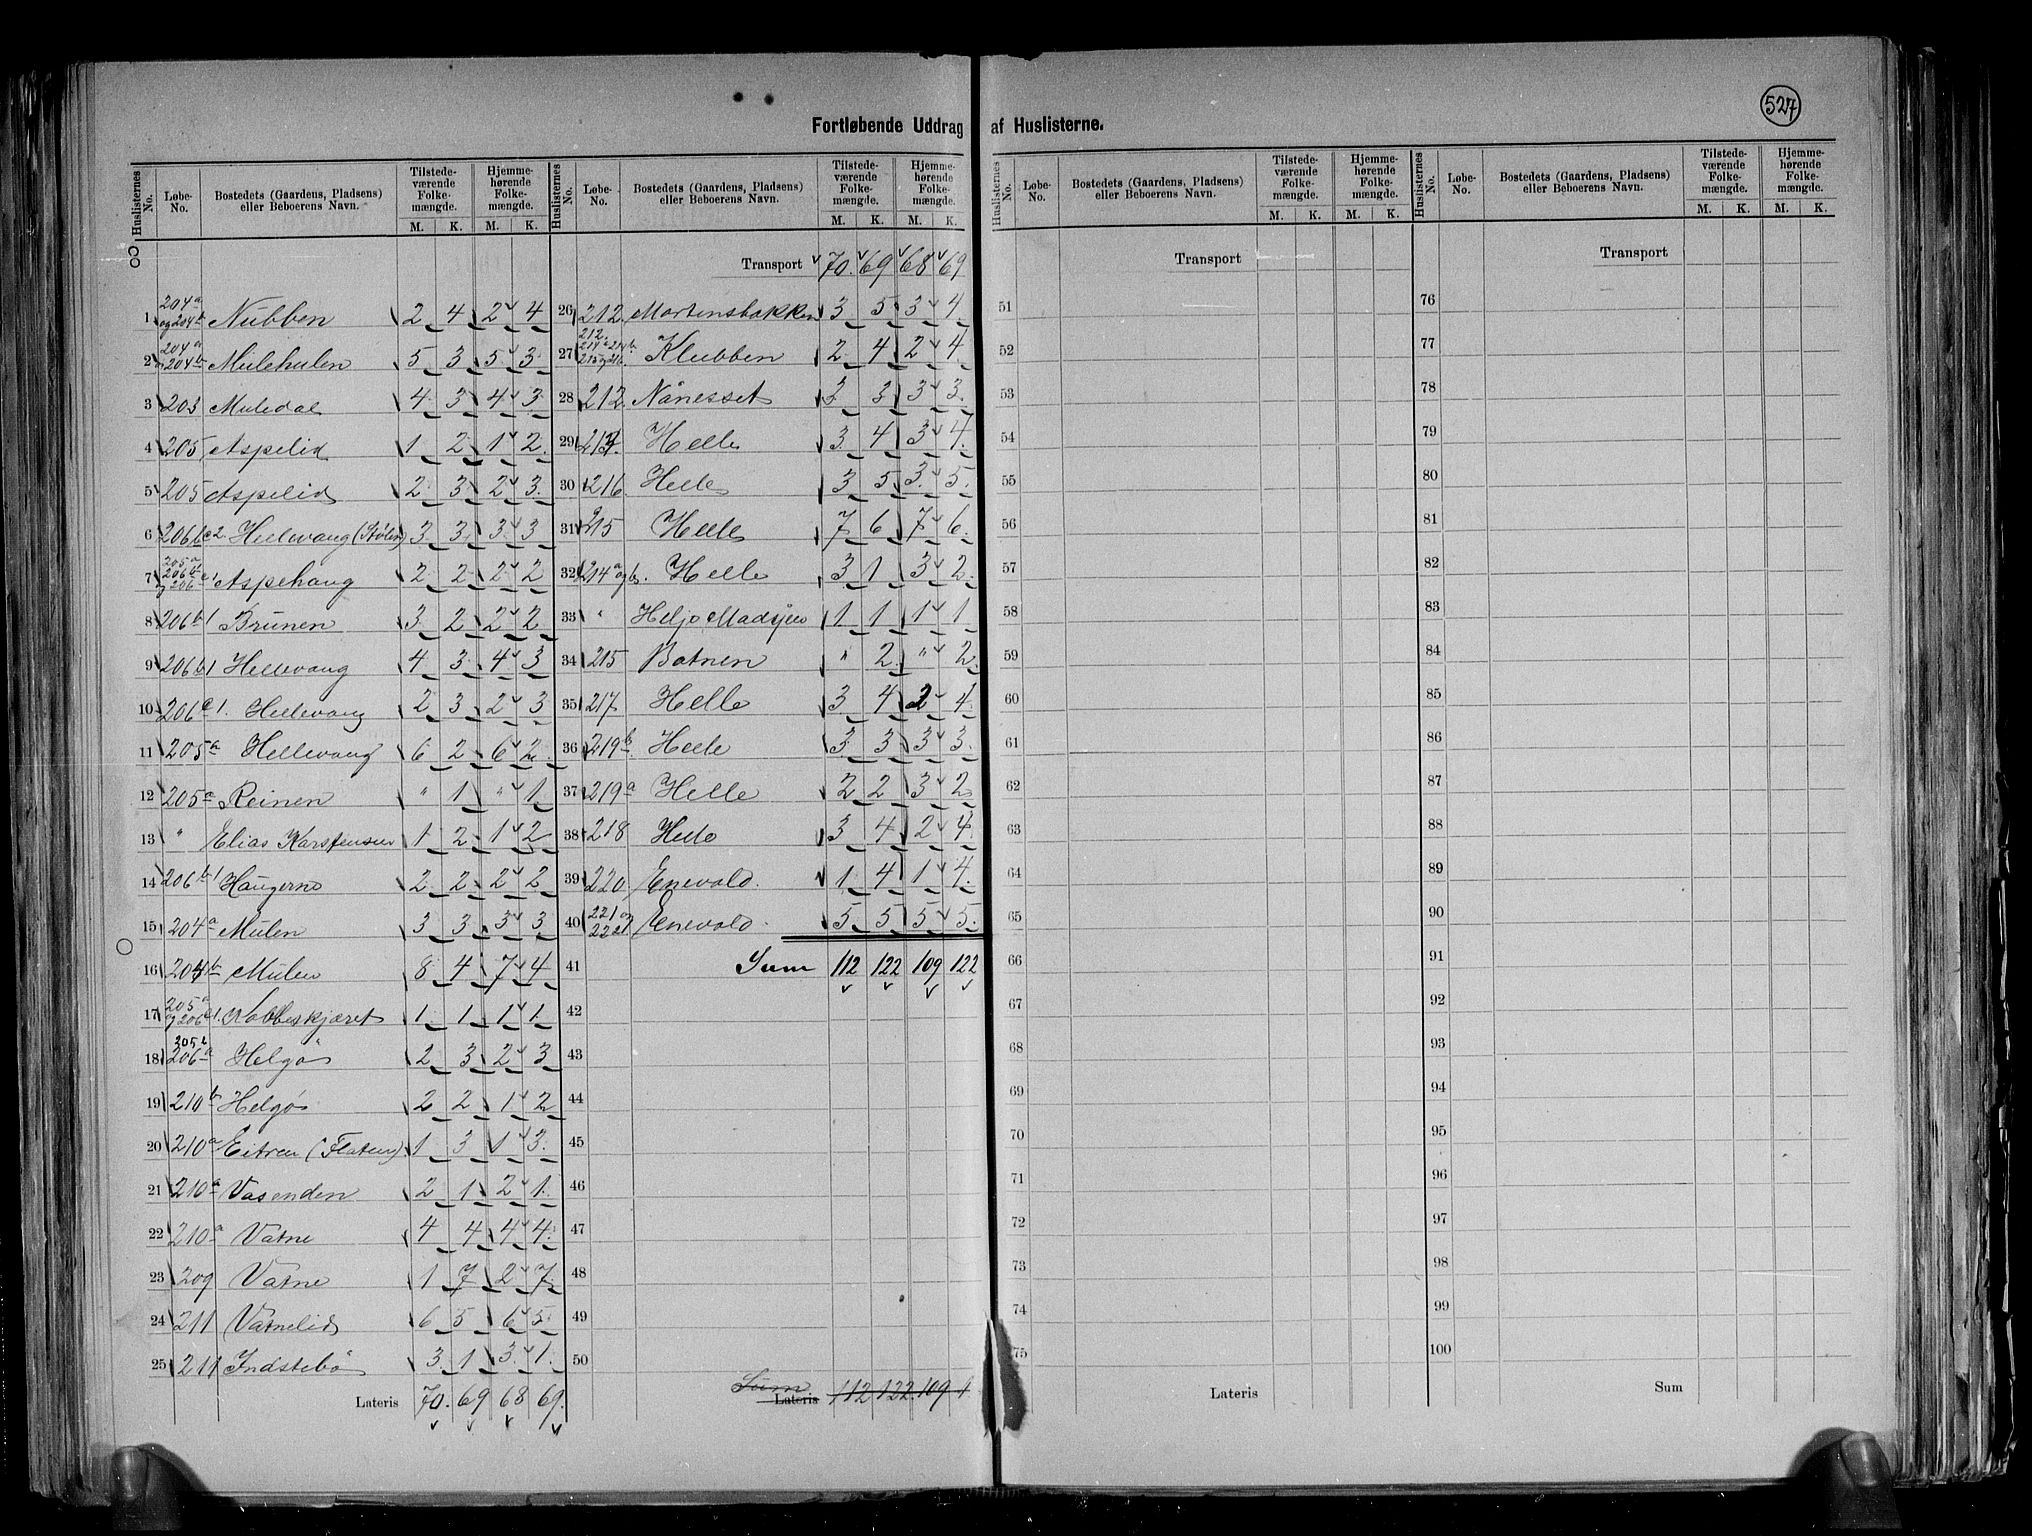 527
Fortløbende Uddrag af Huslisterne.
Huslisternes No. Løbe-No. Bostedets (Gaardens, Pladsens) eller Beboerens Navn. Tilstedeværende Folkemængde. M. K. Hjemmehørende Folkemængde. M. K.
1 204a og 204b Nubben 2 4 2 4
2 204a og 204b Mulehulen 5 3 5 3
3 203 Muledal 4 3 4 3
4 205 Aspelid 1 2 1 2
5 205 Aspelid 2 3 2 3
6 206b c2 Hellevang (Stølen) 3 3 3 3
7 205a 206b1 og 206c1 Aspehaug 2 2 2 2
8 206b1 Brunen 3 2 2 2
9 206b1 Hellevang 4 3 4 3
10 206c1. Hellevang 2 3 2 3
11 205a Hellevang 6 2 6 2
12 205a Reinen " 1 " 1
13 " Elias Karstensen 1 2 1 2
14 206b1 Haugerne 2 2 2 2
15 204a Mulen 3 3 3 3
16 204b Mulen 8 4 7 4
17 205a og 206c1. Nobbeskjæret 1 1 1 1
18 205b 206a Helgø 2 3 2 3
19 210b Helgø 2 2 1 2
20 210a Eitren (Flaten) 1 3 1 3
21 210a Vasenden 2 1 2 1
22 210a Vatne 4 4 4 4
23 209 Vatne 1 7 2 7
24 211 Vatnelid 6 5 6 5
25 211 Indstebø 3 1 3 1
Lateris 70. 69 68 69.
Huslisternes No. Løbe-No. Bostedets (Gaardens, Pladsens) eller Beboerens Navn. Tilstedeværende Folkemængde. M. K. Hjemmehørende Folkemængde. M. K.
Transport 70. 69 68 69
26 212 Mortensbakken 3 5 3 4
27 212 214a 214b 215 og 216 Klubben 2 4 2 4
28 212 Nånesset 3 3 3 3
29 214 Helle 3 4 3 4
30 216 Helle 3 5 3 5
31 215 Helle 7 6 7 6
32 214a og b. Helle 3 1 3 2
33 " Helje Madsjen 1 1 1 1
34 215 Botnen " 2 " 2
35 217 Helle 3 4 2 4
36 219b Helle 3 3 3 3
37 219a Helle 2 2 3 2
38 218 Helle 3 4 2 4
39 220 Enevald. 1 4 1 4
40 221 og 222 Enevald. 5 5 5 5
41 Sum 112 122 109 122
42
43
44
45
46
47
48
49
50
Sum Lateris 112 122. 109 1
Huslisternes No. Løbe-No. Bostedets (Gaardens, Pladsens) eller Beboerens Navn. Tilstedeværende Folkemængde. M. K. Hjemmehørende Folkemængde. M. K.
Transport
51
52
53
54
55
56
57
58
59
60
61
62
63
64
65
66
67
68
69
70
71
72
73
74
75
Lateris
Huslisternes No. Løbe-No. Bostedets (Gaardens, Pladsens) eller Beboerens Navn. Tilstedeværende Folkemængde. M. K. Hjemmehørende Folkemængde. M. K.
Transport
76
77
78
79
80
81
82
83
84
85
86
87
88
89
90
91
92
93
94
95
96
97
98
99
100
Sum